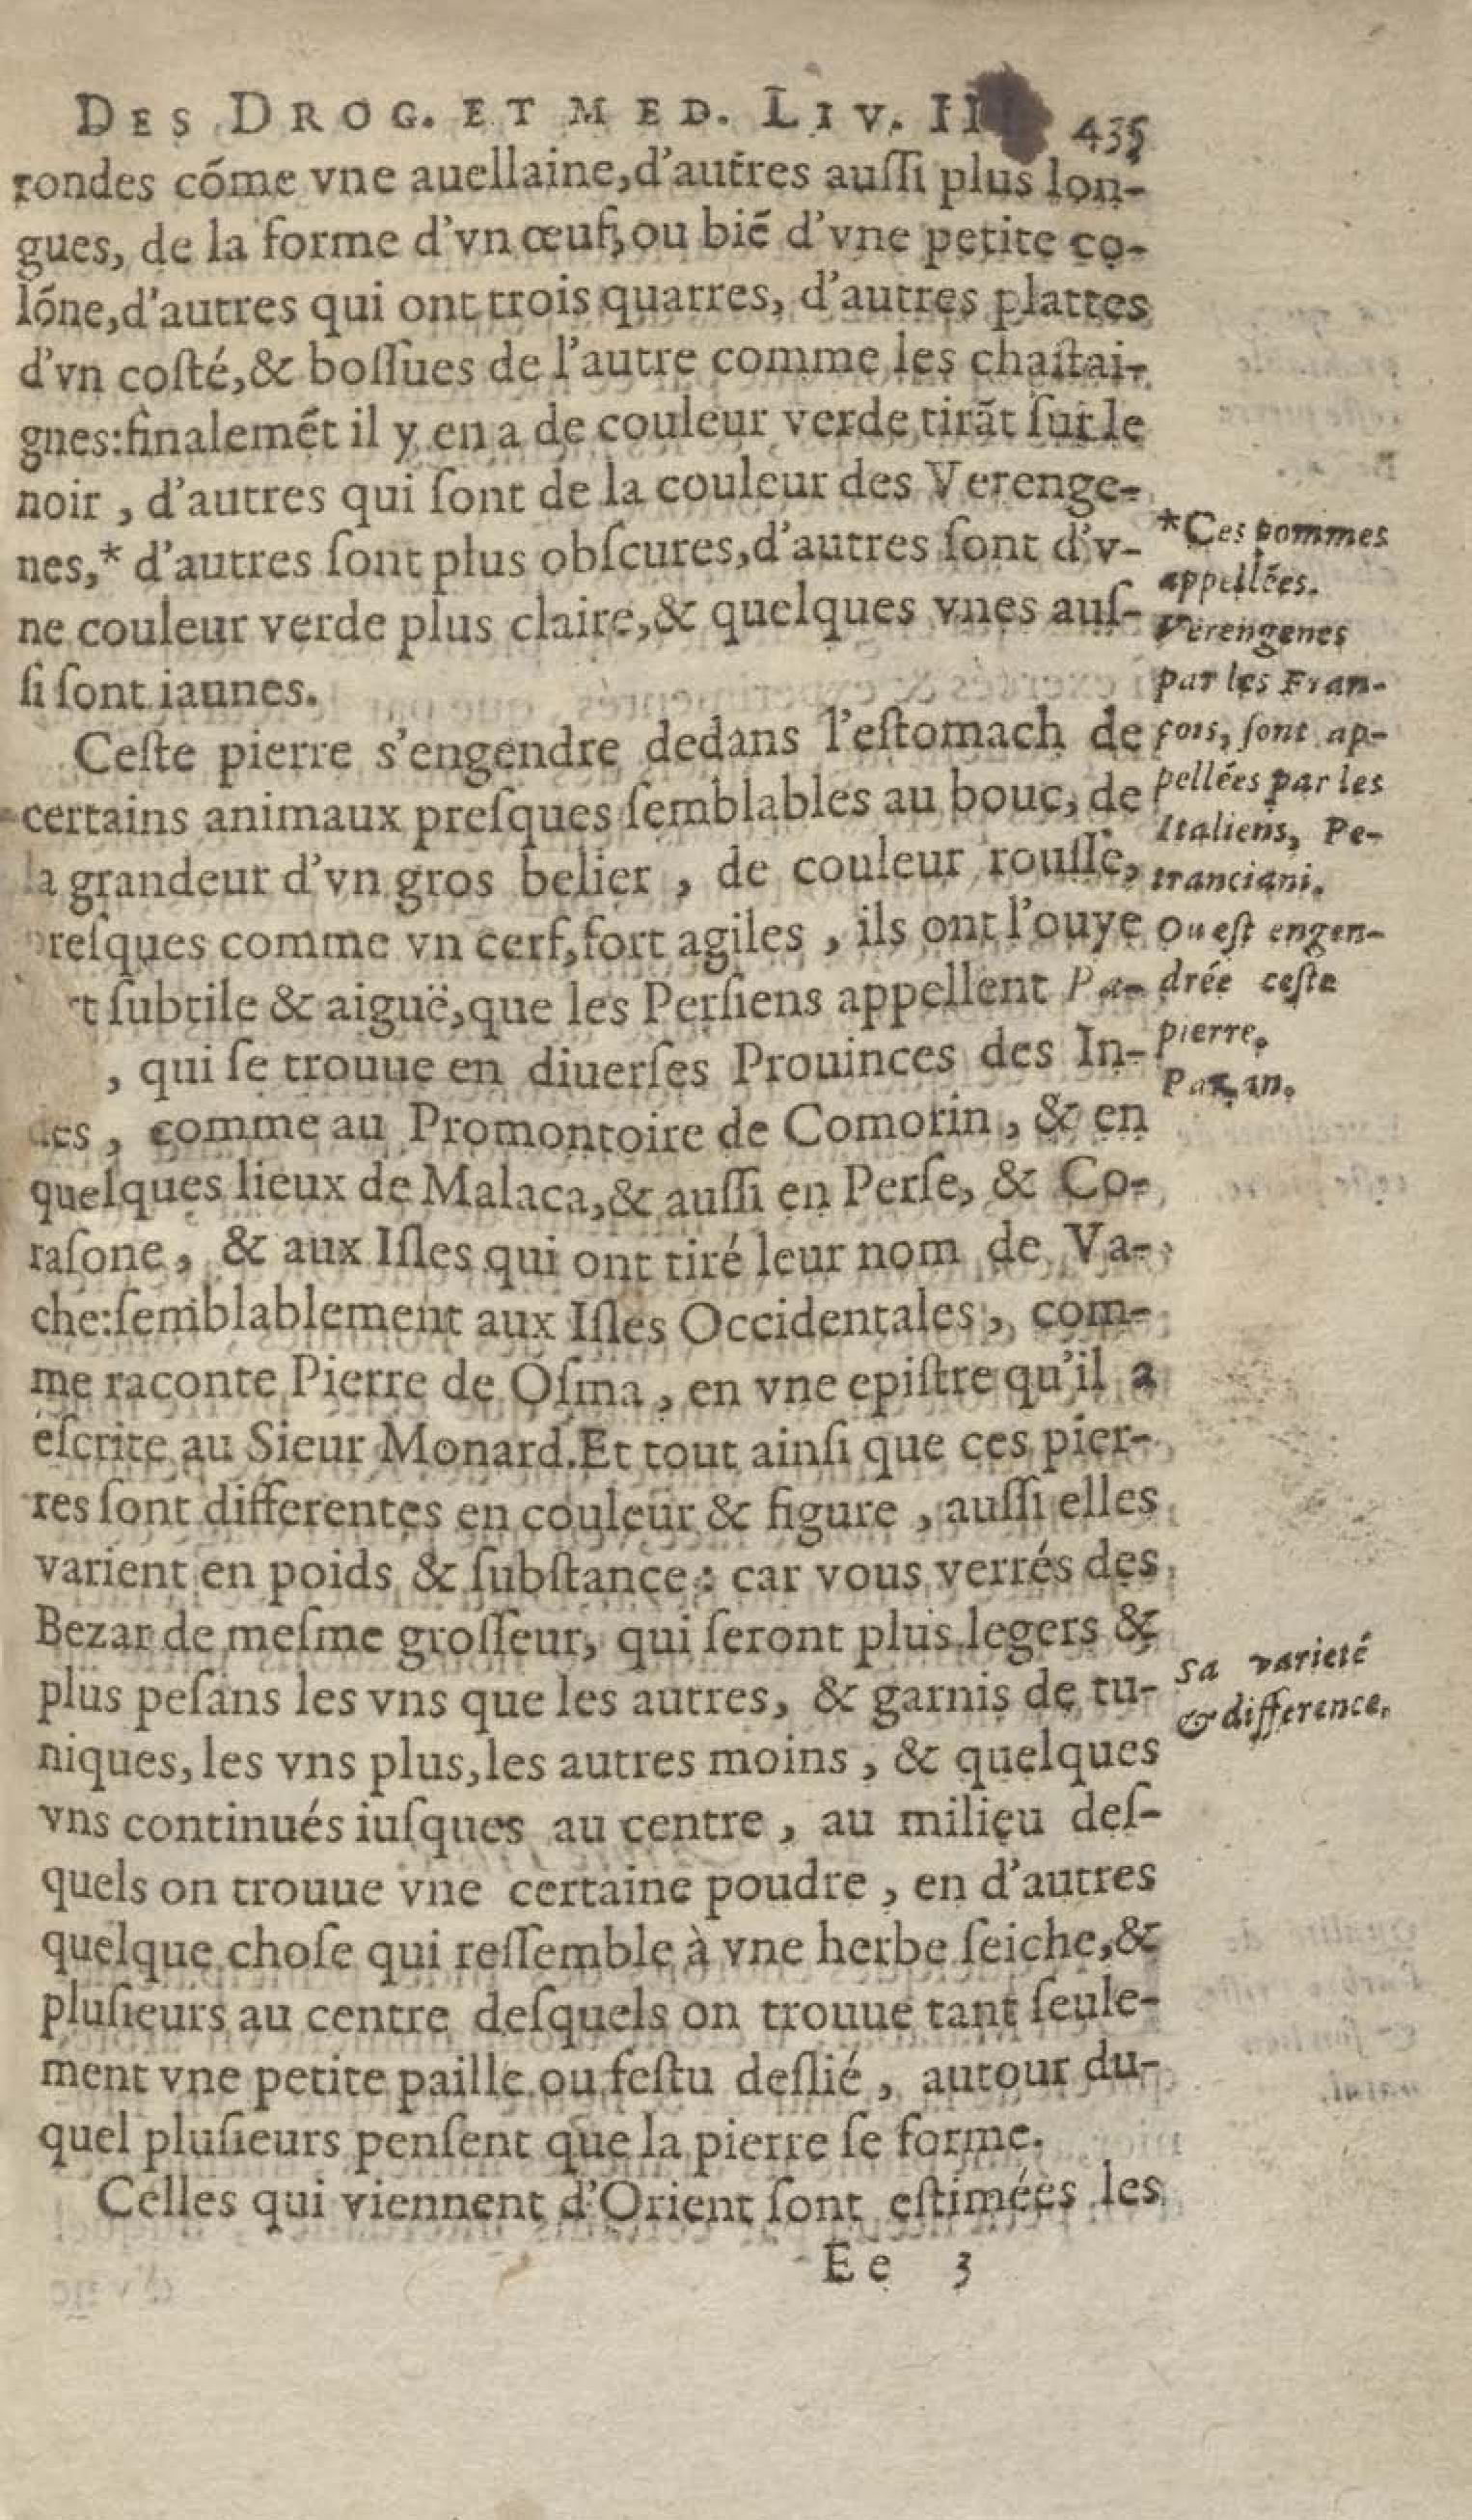 DES DROG. ET MED. LIV. II 435
rondes cóme vne auellaine,d'autres auſſi plus lon-
gues, de la forme d'vn œuf,ou biẽ d'vne petite co-
lóne,d'autres qui ont trois quarres, d'autres plattes
d'vn coſté,& boſſues de l'autre comme les chaſtai-
gnes:finalemẽt il y en a de couleur verde tirãt ſur le
noir , d'autres qui ſont de la couleur des Verenge-
nes,* d'autres ſont plus obſcures,d'autres ſont d'v-
ne couleur verde plus claire,& quelques vnes auſ-
ſi ſont iaunes.
Ceſte pierre s'engendre dedans l'eſtomach de
certains animaux preſques ſemblables au bouc, de
la grandeur d'vn gros belier , de couleur rouſſe,
reſques comme vn cerf,fort agiles , ils ont l'ouye
t ſubtile & aiguë,que les Perſiens appellent Pa-
, qui ſe trouue en diuerſes Prouinces des In-
des , comme au Promontoire de Comorin , & en
quelques lieux de Malaca,& auſſi en Perſe, & Co-
raſone , & aux Iſles qui ont tiré leur nom de Va-
che:ſemblablement aux Iſles Occidentales , com-
me raconte Pierre de Oſma , en vne epiſtre qu'il a
eſcrite au Sieur Monard.Et tout ainſi que ces pier-
res ſont differentes en couleur & figure , auſſi elles
varient en poids & ſubſtance : car vous verrés des
Bezar de meſme groſſeur, qui ſeront plus legers &
plus peſans les vns que les autres, & garnis de tu-
niques, les vns plus,les autres moins , & quelques
vns continués iuſques au centre , au milieu deſ-
quels on trouue vne certaine poudre , en d'autres
quelque choſe qui reſſemble à vne herbe ſeiche,&
pluſieurs au centre deſquels on trouue tant ſeule-
ment vne petite paille ou feſtu deſlié , autour du-
quel pluſieurs penſent que la pierre ſe forme.
Celles qui viennent d'Orient ſont eſtimées les
Ee 3
*Ces pommes
appellées.
Verengenes
par les Fran-
çois, ſont ap-
pellées par les
Italiens, Pe-
tranciani.
Ou eſt engen-
drée ceſte
pierre.
Pazan.
Sa varieté
& difference.